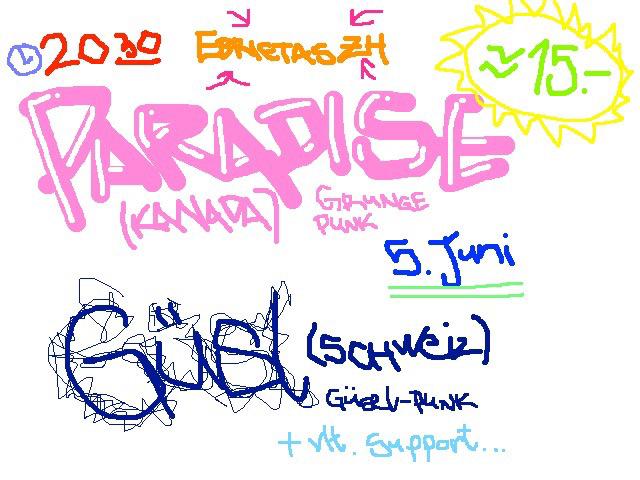 20 30
EBNETAS ZH
~15.-
PARADISE
(KANADA)
GRUNGE
PUNK
5. Juni
GÜSEL
(SCHWEIZ)
GÜSEL-PUNK
+ vlt. support...